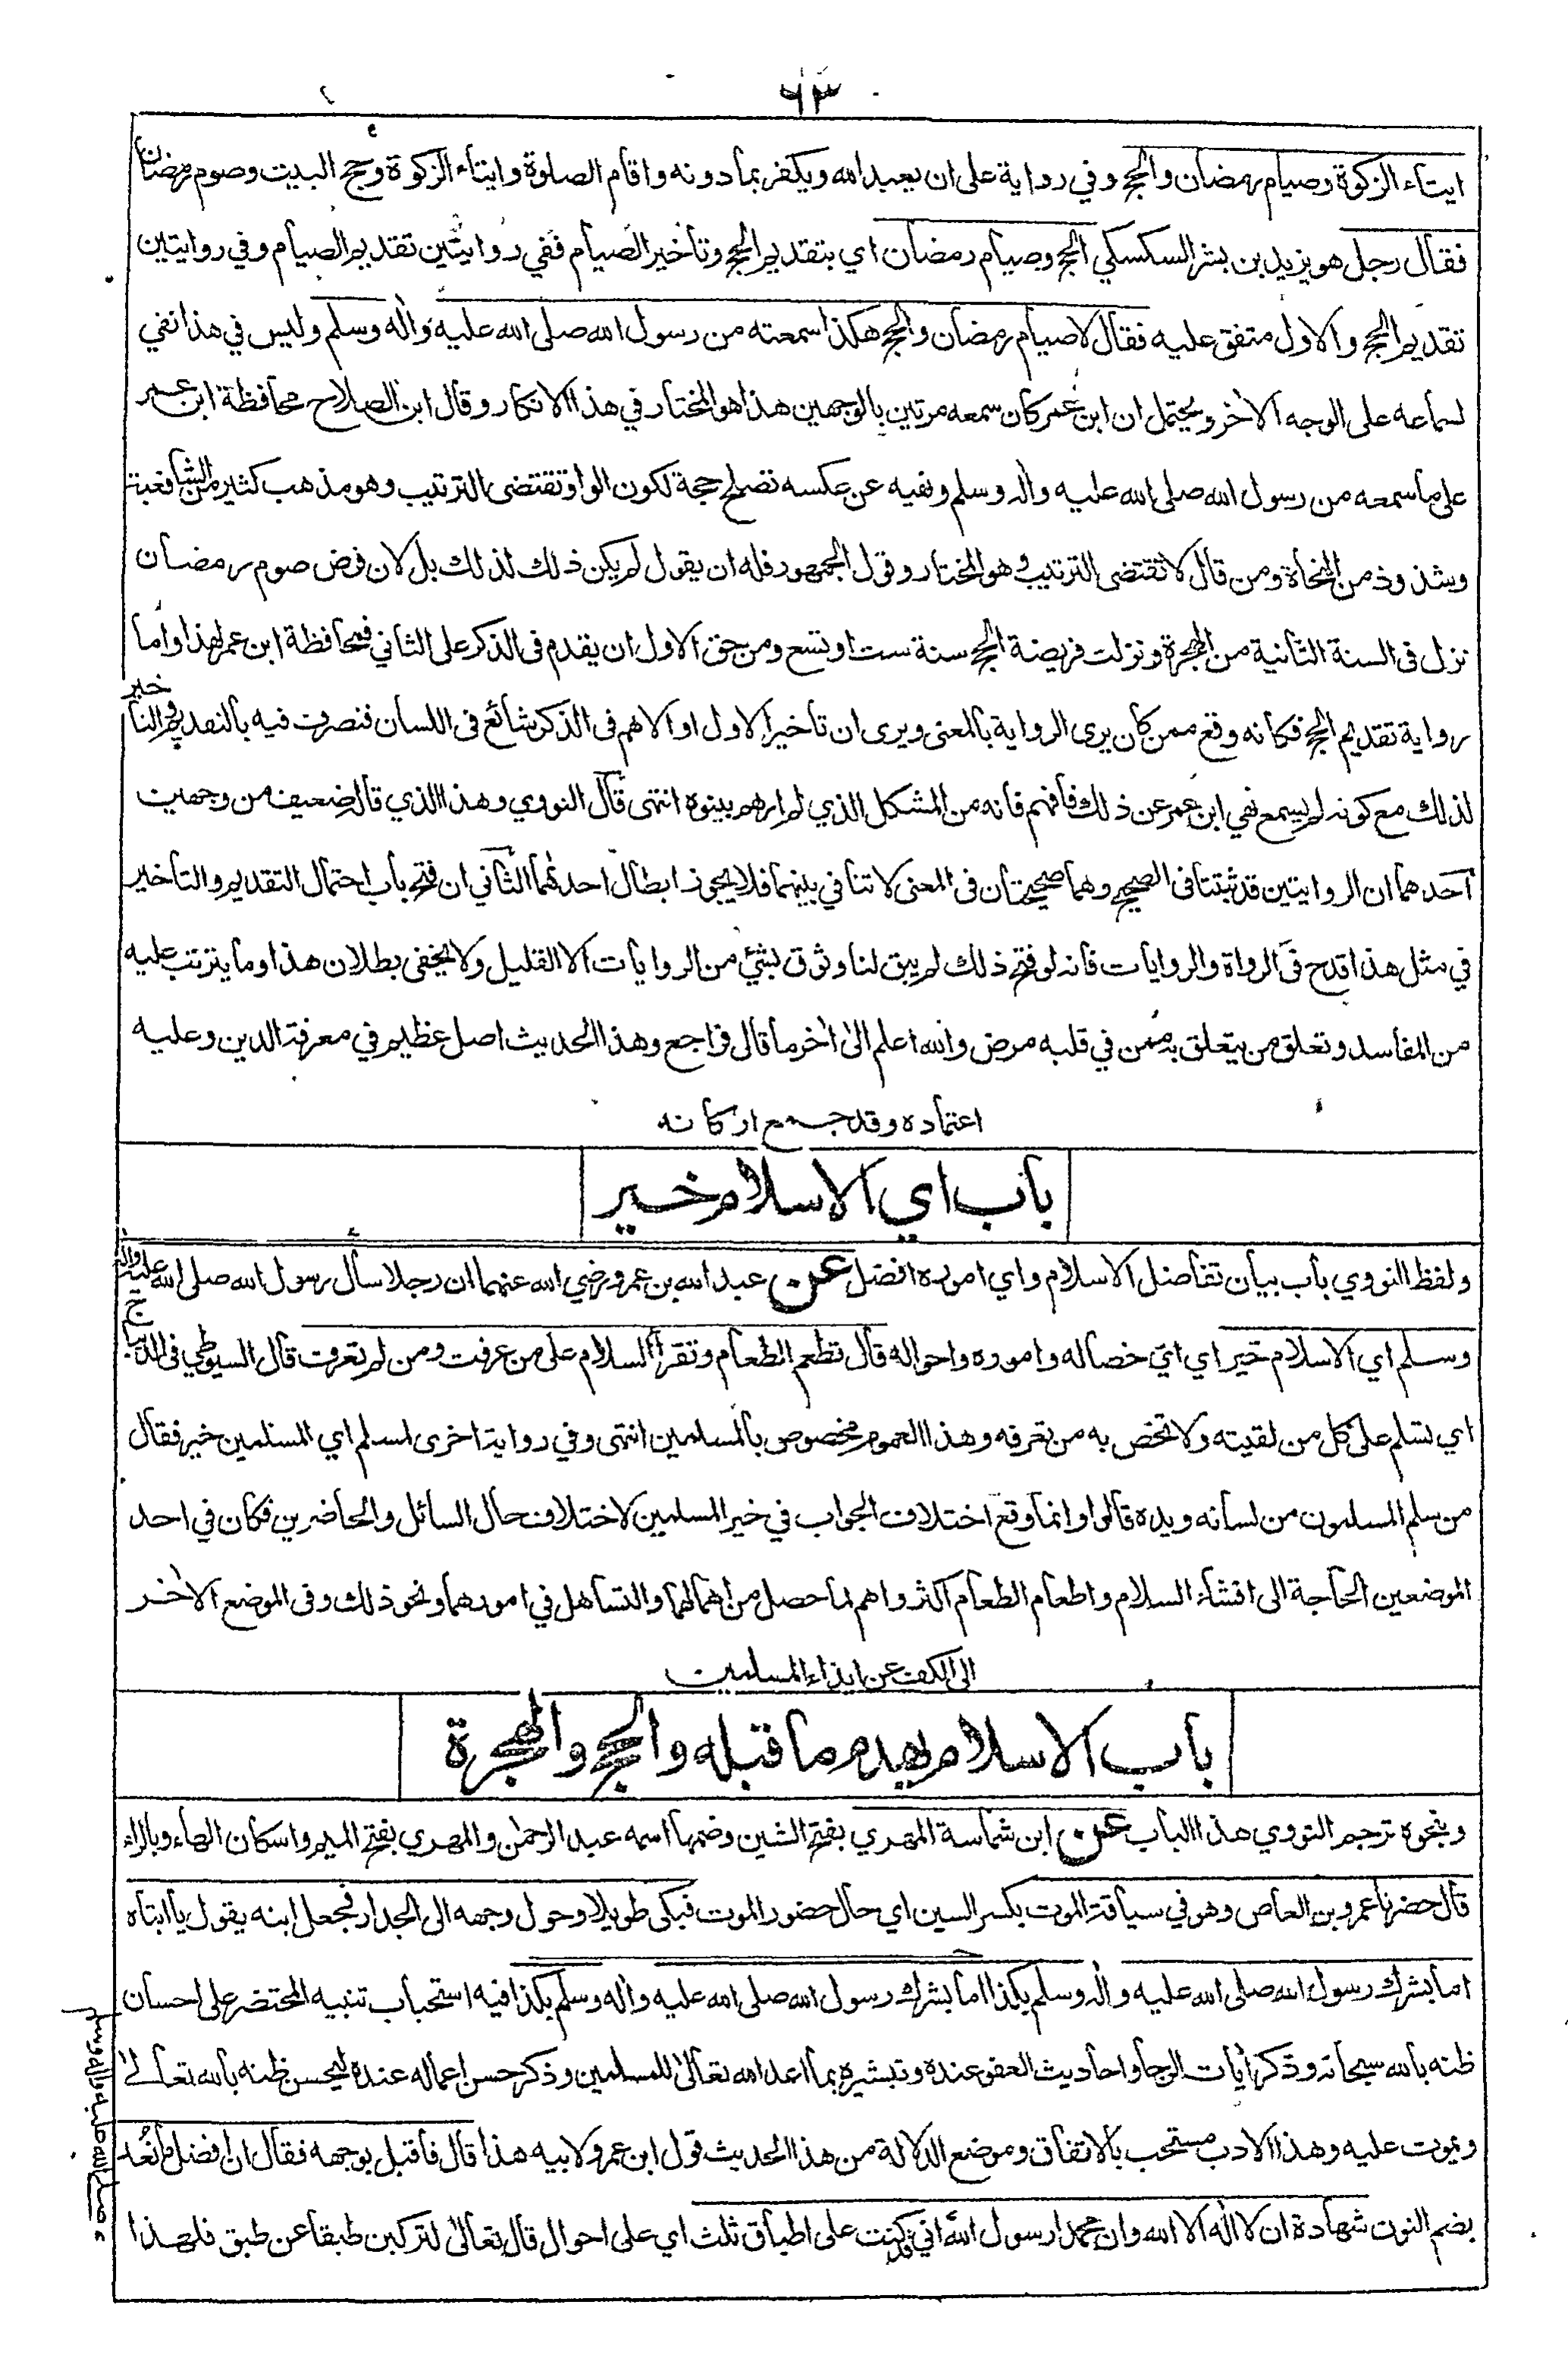 ٦٣
ايتاء الزكوة وصيام رمضان والحج وفي رواية على ان يعبد الله ويكفر بما دونه واقام الصلوة وايتاء الزكوة وحج البيت وصوم رمضان
فقال رجل هو يزيد بن بشر السكسكي الحج وصيام رمضان اي بتقديم الحج وتأخير الصيام ففي روايتين تقديم الصيام وفي روايتين
تقديم الحج والاول متفق عليه فقال لا صيام رمضان والحج هكذا سمعته من رسول الله صلى الله عليه وآله وسلم وليس في هذا نفي
لسماعه على الوجه الآخر ويحتمل ان ابن عمر كان سمعه مرتين بالوجهين هذا هو المختار في هذا الانكار وقال ابن الصلاح محافظة ابن عمر
على ما سمعه من رسول الله صلى الله عليه وآله وسلم ونفيه عن عكسه تصلح حجة لكون الواو تقتضى الترتيب وهو مذهب كثير من الشافعية
وشذوذ من النحاة ومن قال لا تقتضى الترتيب وهو المختار وقول الجمهور فله ان يقول لم يكن ذلك لذلك بل لان فرض صوم رمضان
نزل فى السنة الثانية من الهجرة ونزلت فريضة الحج سنة ست او تسع ومن حق الاول ان يقدم فى الذكر على الثاني فمحافظة ابن عمر لهذا واما
رواية تقديم الحج فكانه وقع ممن كان يرى الرواية بالمعنى ويرى ان تأخير الاول او الاهم فى الذكر شائع فى اللسان فتصرف فيه بالتقديم والتأخير
لذلك مع كونه لم يسمع نهي ابن عمر عن ذلك فافهم فانه من المشكل الذي لم ارهم بينوه انتهى قال النووي وهذا الذي قاله ضعيف من وجهين
احدهما ان الروايتين قد ثبتتا فى الصحيح وهما صحيحتان فى المعنى لا تنافي بينهما فلا يجوز ابطال احدهما الثاني ان فتح باب احتمال التقديم والتأخير
في مثل هذا قدح فى الرواة والروايات فانه لو فتح ذلك لم يبق لنا وثوق بشئ من الروايات الا القليل ولا يخفى بطلان هذا وما يترتب عليه
من المفاسد وتعلق من يتعلق به ممن في قلبه مرض والله اعلم الى آخر ما قال فراجع وهذا الحديث اصل عظيم في معرفة الدين وعليه
اعتماده وقد جمع اركانه
باب اي الاسلام خير
ولفظ النووي باب بيان تفاضل الاسلام واي اموره افضل عن عبد الله بن عمرو رضي الله عنهما ان رجلا سأل رسول الله صلى الله عليه وآله
وسلم اي الاسلام خير اي اي خصاله واموره واحواله قال تطعم الطعام وتقرأ السلام على من عرفت ومن لم تعرف قال السيوطي فى الديباج
اي تسلم على كل من لقيته ولا تخص به من تعرفه وهذا العموم مخصوص بالمسلمين انتهى وفي رواية اخرى لمسلم اي المسلمين خير فقال
من سلم المسلمون من لسانه ويده قالوا وانما وقع اختلاف الجواب في خير المسلمين لاختلاف حال السائل والحاضرين فكان في احد
الموضعين الحاجة الى افشاء السلام واطعام الطعام اكثر واهم لما حصل من اهمالهما والتساهل في امورهما ونحو ذلك وفى الموضع الآخر
الى الكف عن ايذاء المسلمين
باب الاسلام يهدم ما قبله والحج والهجرة
وبنحوه ترجم النووي هذا الباب عن ابن شماسة المهري بفتح الشين وضمها اسمه عبد الرحمن والمهري بفتح الميم واسكان الهاء وبالراء
قال حضرنا عمرو بن العاص وهو في سياقة الموت بكسر السين اي حال حضور الموت فبكى طويلا وحول وجهه الى الجدار فجعل ابنه يقول يا ابتاه
اما بشرك رسول الله صلى الله عليه وآله وسلم بكذا اما بشرك رسول الله صلى الله عليه وآله وسلم بكذا فيه استحباب تنبيه المحتضر على احسان
ظنه بالله سبحانه وذكر آيات الرجا واحاديث العفو عنده وتبشيره بما اعد الله تعالى للمسلمين وذكر حسن اعماله عنده ليحسن ظنه بالله تعالى
ويموت عليه وهذا الادب مستحب بالاتفاق وموضع الدلالة من هذا الحديث قول ابن عمرو لابيه هذا قال فاقبل بوجهه فقال ان افضل ما نُعد
بضم النون شهادة ان لا اله الا الله وان محمدا رسول الله اني قد كنت على اطباق ثلث اي على احوال قال تعالى لتركبن طبقا عن طبق فلهذا
صلى الله عليه وآله وسلم